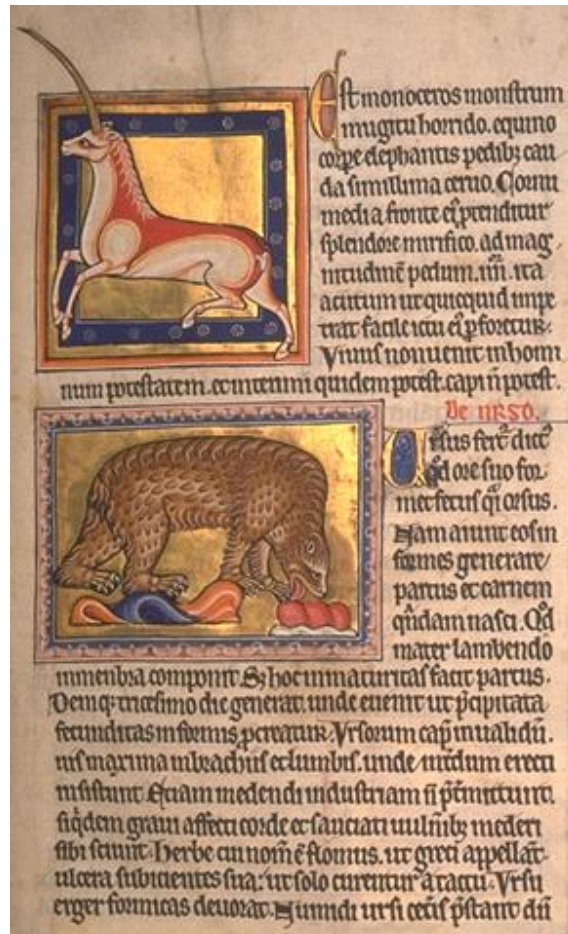 Est monoceros monstrum
mugitu horrido. equino
corpe elephantis pedibꝫ cau
da simillima ceruo. Cornu
media fronte eꝰ ptenditur
splendore mirifico. ad mag
nitudinē pedum .iiii. ita
acutum ut quicquid impe
trat facile ictu eꝰ pforetur.
Viuus non uenit in homi
num potestatem. et interimi quidem potest. capi n̄ potest.
De urso.
Vrsus fert͛ dict͛
qd ore suo for
met fetus q̄i orsus.
Nam aiunt eos in
formes generare
partus et carnem
quandam nasci. Qd
mater lambendo
in menbra componit. Sꝫ hoc inmaturitas facit partus.
Deniqꝫ tricesimo die generat. unde euenit ut pcipitata
fecunditas informis pcreatur. Vrsorum cap inualidū.
uis maxima in brachiis et lumbis. unde int͛dum erecti
insistunt. Etiam medendi industriam n̄ pt͛mittunt.
siqdem graui affecti corde et sauciati uulnibꝫ mederi
sibi sciunt. herbe cui nom̄ ē flomus. ut greci appellāt.
ulcera subicientes sua. ut solo curentur a tactu. Vrsu
erger formicas deuorat. Numidi ursi cet͛is pstant dū